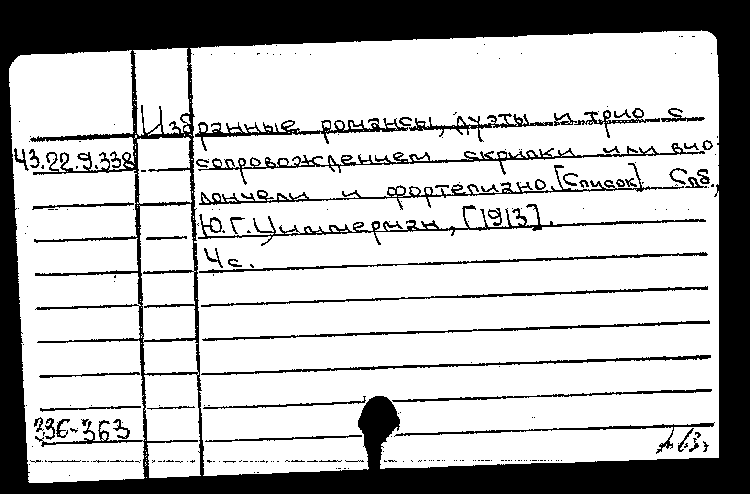 Избранные романсы, дуэты и трио с
43.22.9.338 сопровождением скрипки или вио-
лончели и фортепиано. [Список]. Спб.,
Ю.Г. Циммерман, [1913].
4 с.
336-363